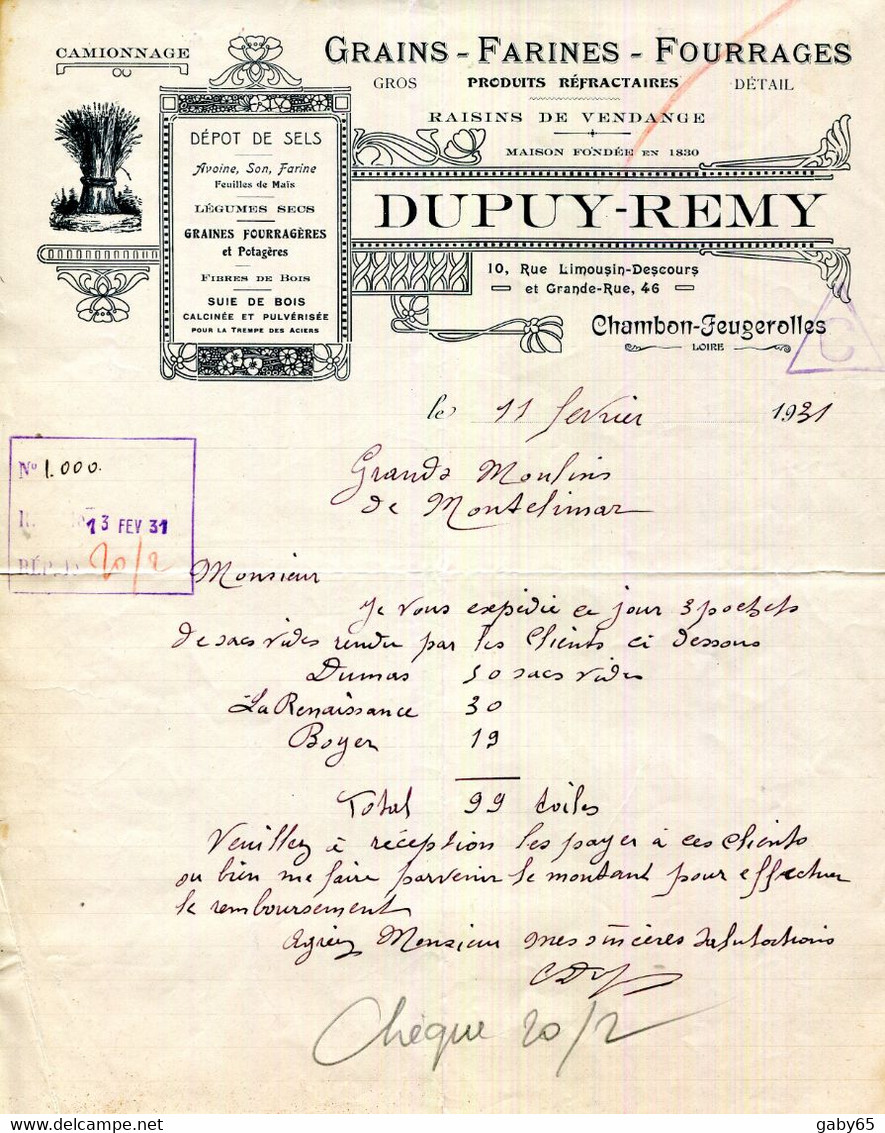 CAMIONNAGE
GRAINS - FARINES - FOURRAGES
GROS PRODUITS RÉFRACTAIRES DÉTAIL
RAISINS DE VENDANGE
MAISON FONDÉE EN 1830
DUPUY-REMY
10, Rue Limousin-Descours
et Grande-Rue, 46
Chambon-Feugerolles
LOIRE
DÉPOT DE SELS
Avoine, Son, Farine
Feuilles de Maïs
LÉGUMES SECS
GRAINES FOURRAGÈRES
et Potagères
FIBRES DE BOIS
SUIE DE BOIS
CALCINÉE ET PULVÉRISÉE
POUR LA TREMPE DES ACIERS
C
le 11 fevrier 1931
No 1.000.
13 FEV 31
RÉP. le 20/2
Grands Moulins
de Montelimar
Monsieur
Je vous expédie ce jour 3 pochets
de sacs vides rendu par les clients ci dessous
Dumas 50 sacs vides
La Renaissance 30
Boyer 19
Total 99 toiles
Veuillez à réception les payer à ces clients
ou bien me faire parvenir le montant pour effectuer
le remboursement
Agréez Monsieur mes sincères salutations
Chèque 20/2
gaby65